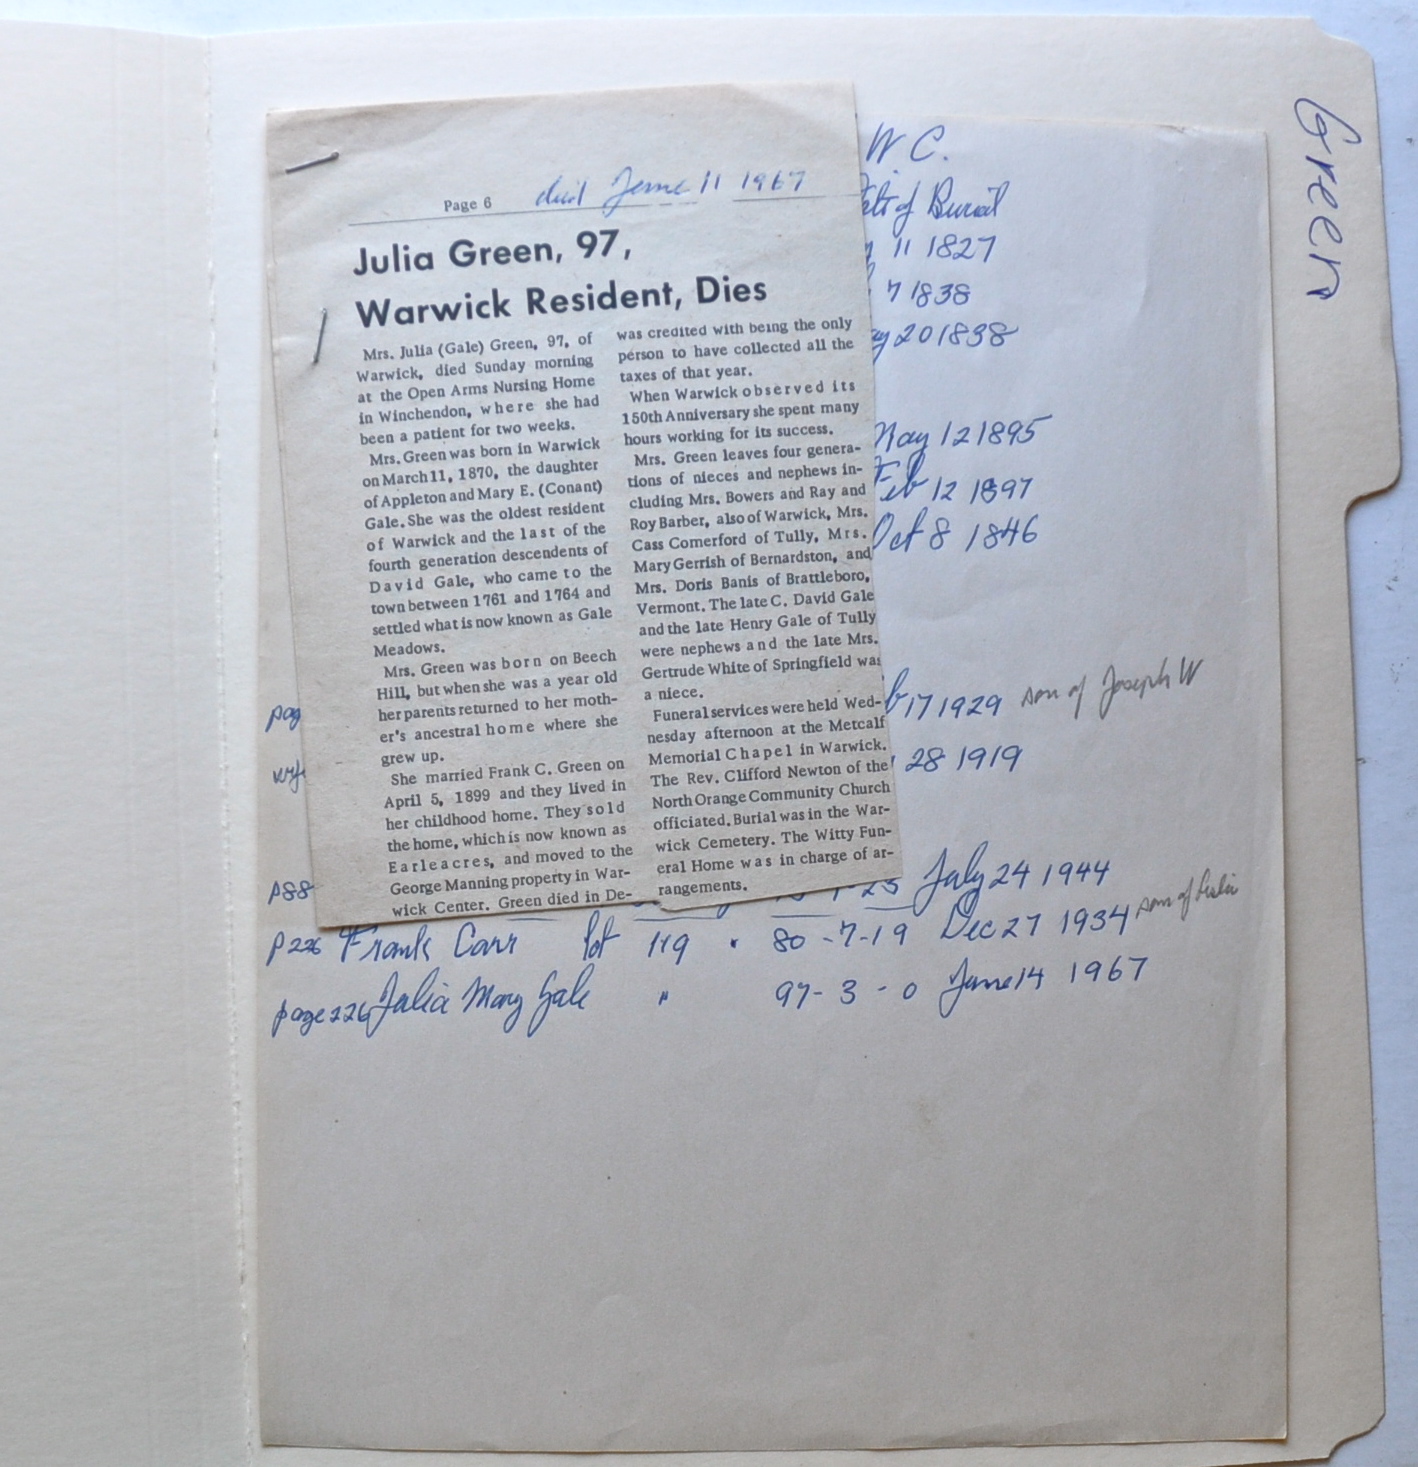 Green
W C.
of Burial
11 1827
7 1838
20 1838
May 12 1895
Feb 12 1897
Oct 8 1846
17 1929 son of Joseph W
28 1919
died June 11 1967
Page 6
Julia Green, 97,
Warwick Resident, Dies
Mrs. Julia (Gale) Green, 97, of
Warwick, died Sunday morning
at the Open Arms Nursing Home
in Winchendon, where she had
been a patient for two weeks.
Mrs. Green was born in Warwick
on March 11, 1870, the daughter
of Appleton and Mary E. (Conant)
Gale. She was the oldest resident
of Warwick and the last of the
fourth generation descendents of
David Gale, who came to the
town between 1761 and 1764 and
settled what is now known as Gale
Meadows.
Mrs. Green was born on Beech
Hill, but when she was a year old
her parents returned to her moth-
er's ancestral home where she
grew up.
She married Frank C. Green on
April 5, 1899 and they lived in
her childhood home. They sold
the home, which is now known as
Earleacres, and moved to the
George Manning property in War-
wick Center. Green died in De-
was credited with being the only
person to have collected all the
taxes of that year.
When Warwick observed its
150th Anniversary she spent many
hours working for its success.
Mrs. Green leaves four genera-
tions of nieces and nephews in-
cluding Mrs. Bowers and Ray and
Roy Barber, also of Warwick, Mrs.
Cass Comerford of Tully, Mrs.
Mary Gerrish of Bernardston, and
Mrs. Doris Banis of Brattleboro,
Vermont. The late C. David Gale
and the late Henry Gale of Tully
were nephews and the late Mrs.
Gertrude White of Springfield was
a niece.
Funeral services were held Wed-
nesday afternoon at the Metcalf
Memorial Chapel in Warwick.
The Rev. Clifford Newton of the
North Orange Community Church
officiated. Burial was in the War-
wick Cemetery. The Witty Fun-
eral Home was in charge of ar-
rangements.
pag
wife
p88 23 July 24 1944
p226 Frank Carr lot 119 " 80-7-19 Dec 27 1934 son of
page 226 Julia Mary Gale " 97-3-0 June 14 1967